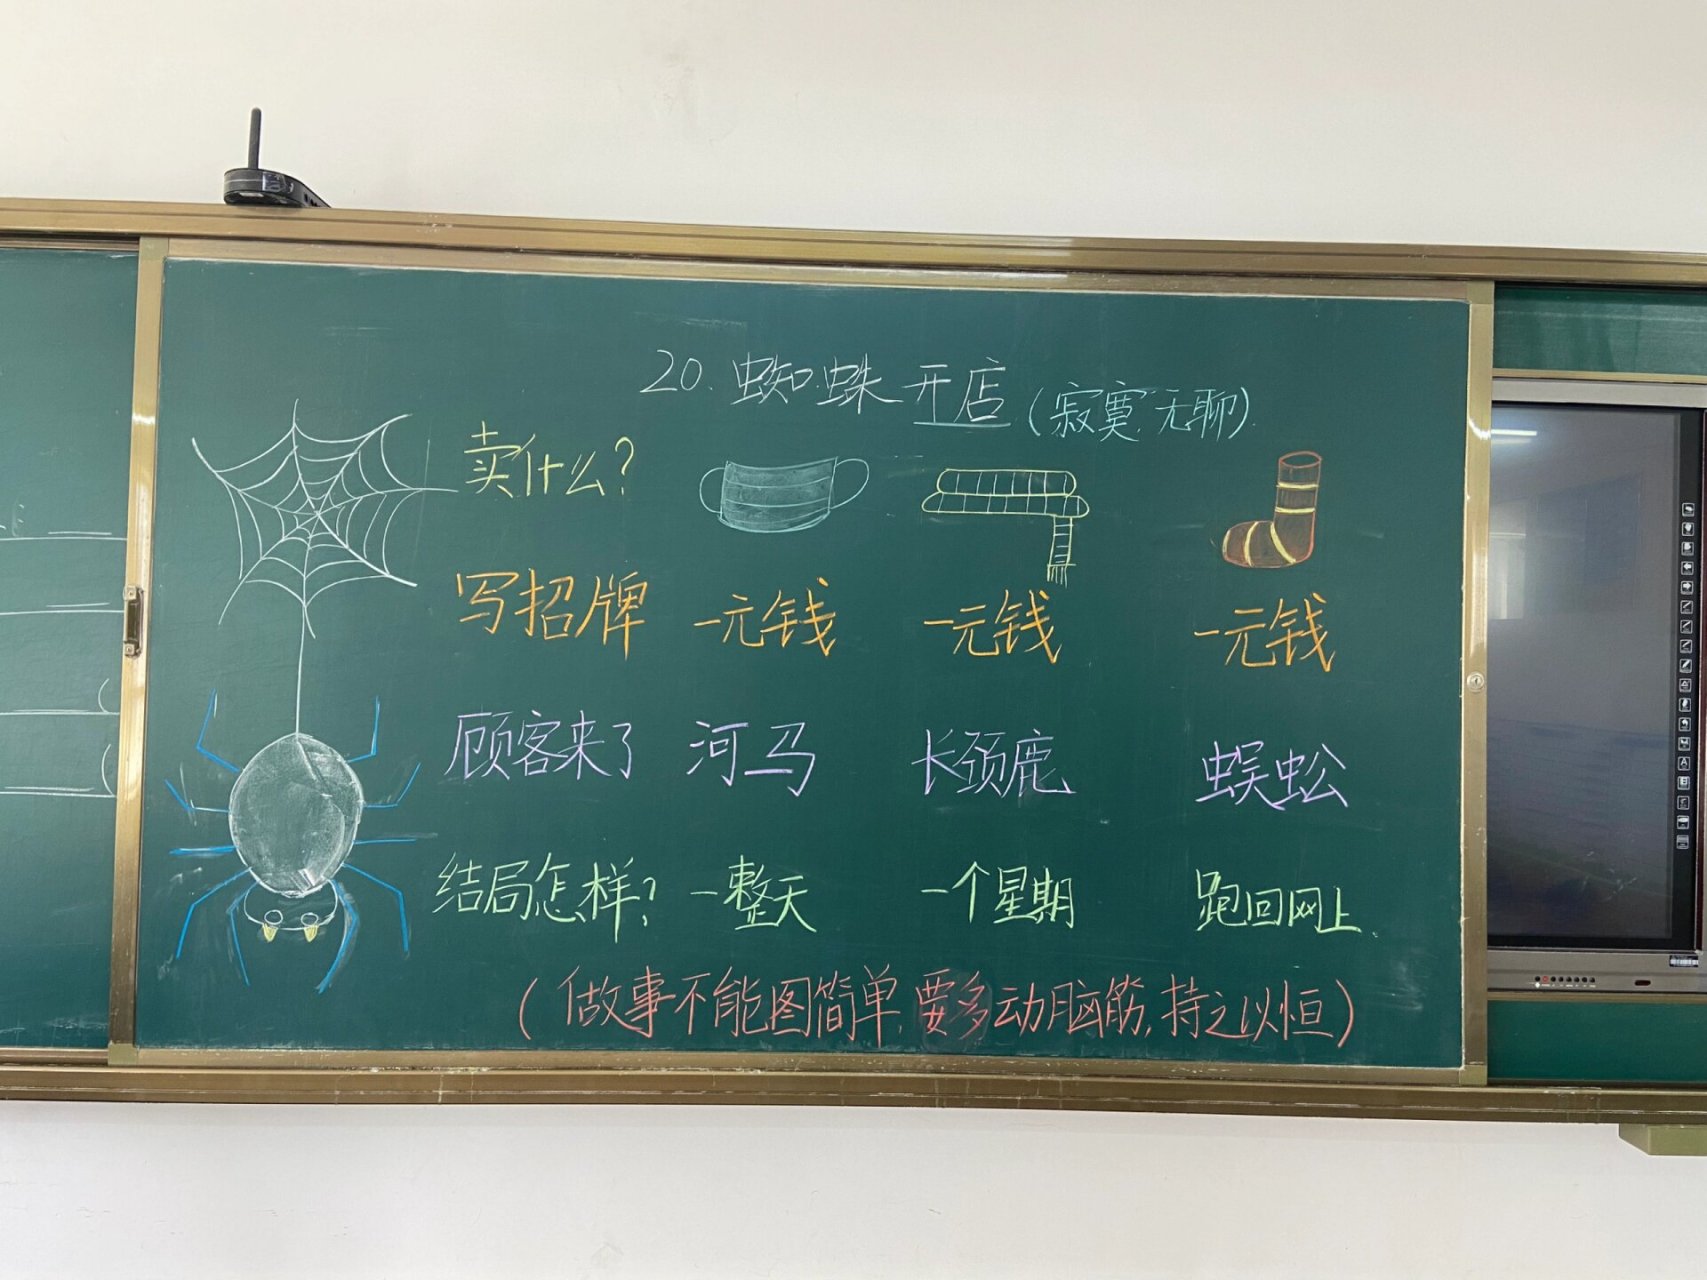 20.蜘蛛开店(寂寞、无聊)
卖什么?
写招牌 一元钱 一元钱 一元钱
顾客来了 河马 长颈鹿 蜈蚣
结局怎样? 一整天 一个星期 跑回网上
(做事不能图简单,要多动脑筋,持之以恒)